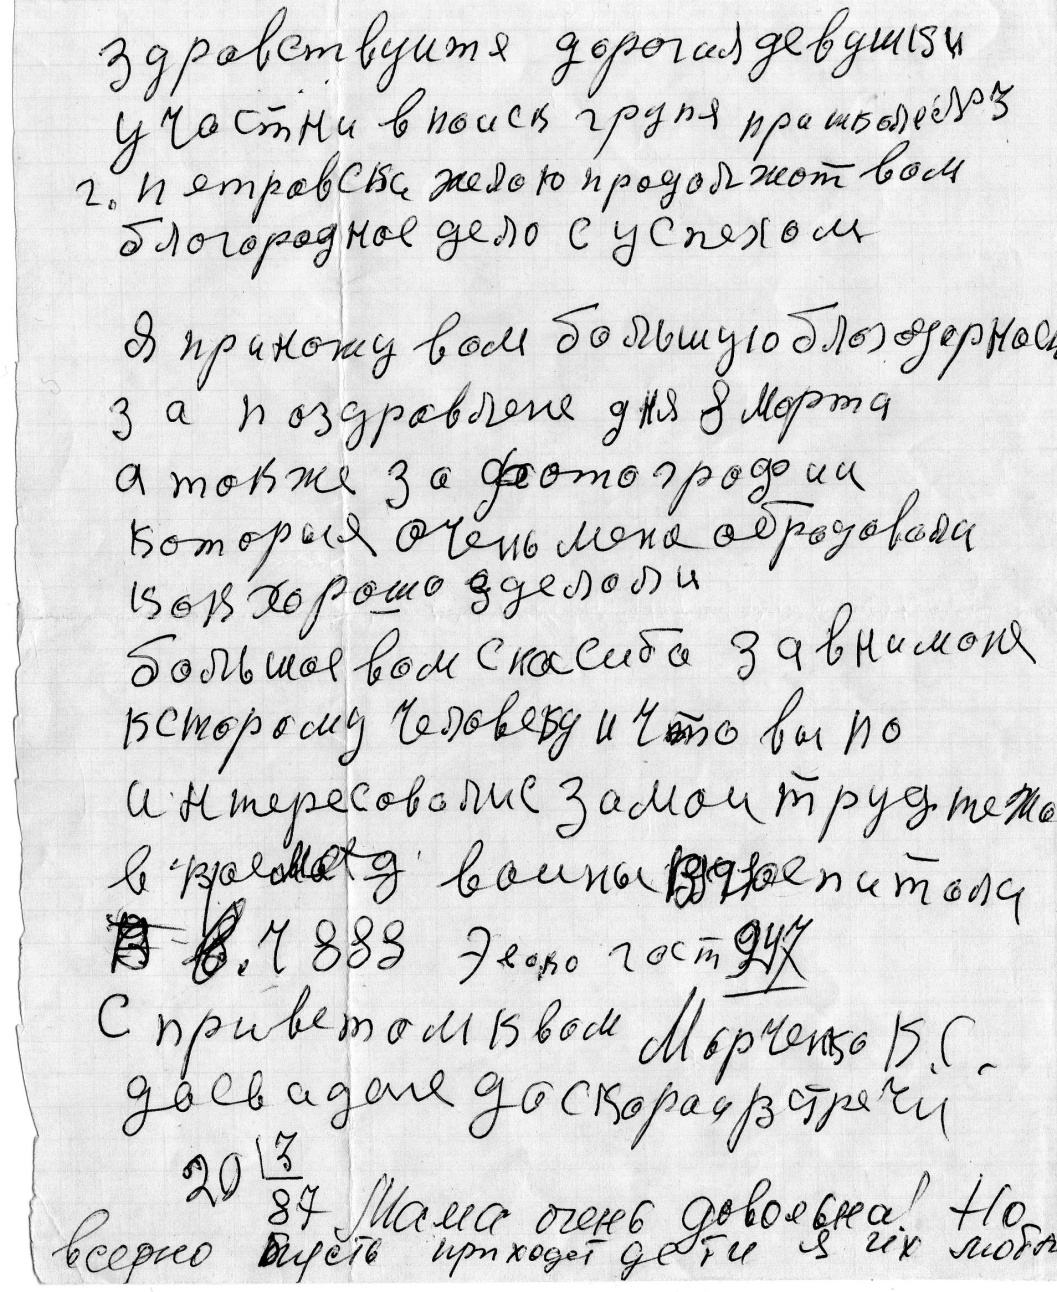 здравствуитя дорогия девушки
участни в поиск групя при школе №3
г. пятравска желою продолжот вам
благородное дело с успехом
Я приношу вам большую благодарнос
за поздравлене дня 8 марта
а также за фотографии
которыя очень меня обрадовали
как хорошо зделоли
большое вам спасибо за внимоня
к старому человеку и что вы по
интересовались за мои труд тежо
в воины питоля
в. ч 888 Эвако гост 947
С приветом к вам Марченко К.С.
досвидоня до скораи встречи
20 3
87 Мама очень довольна! Но
всерно пусть приходят дети я их любл